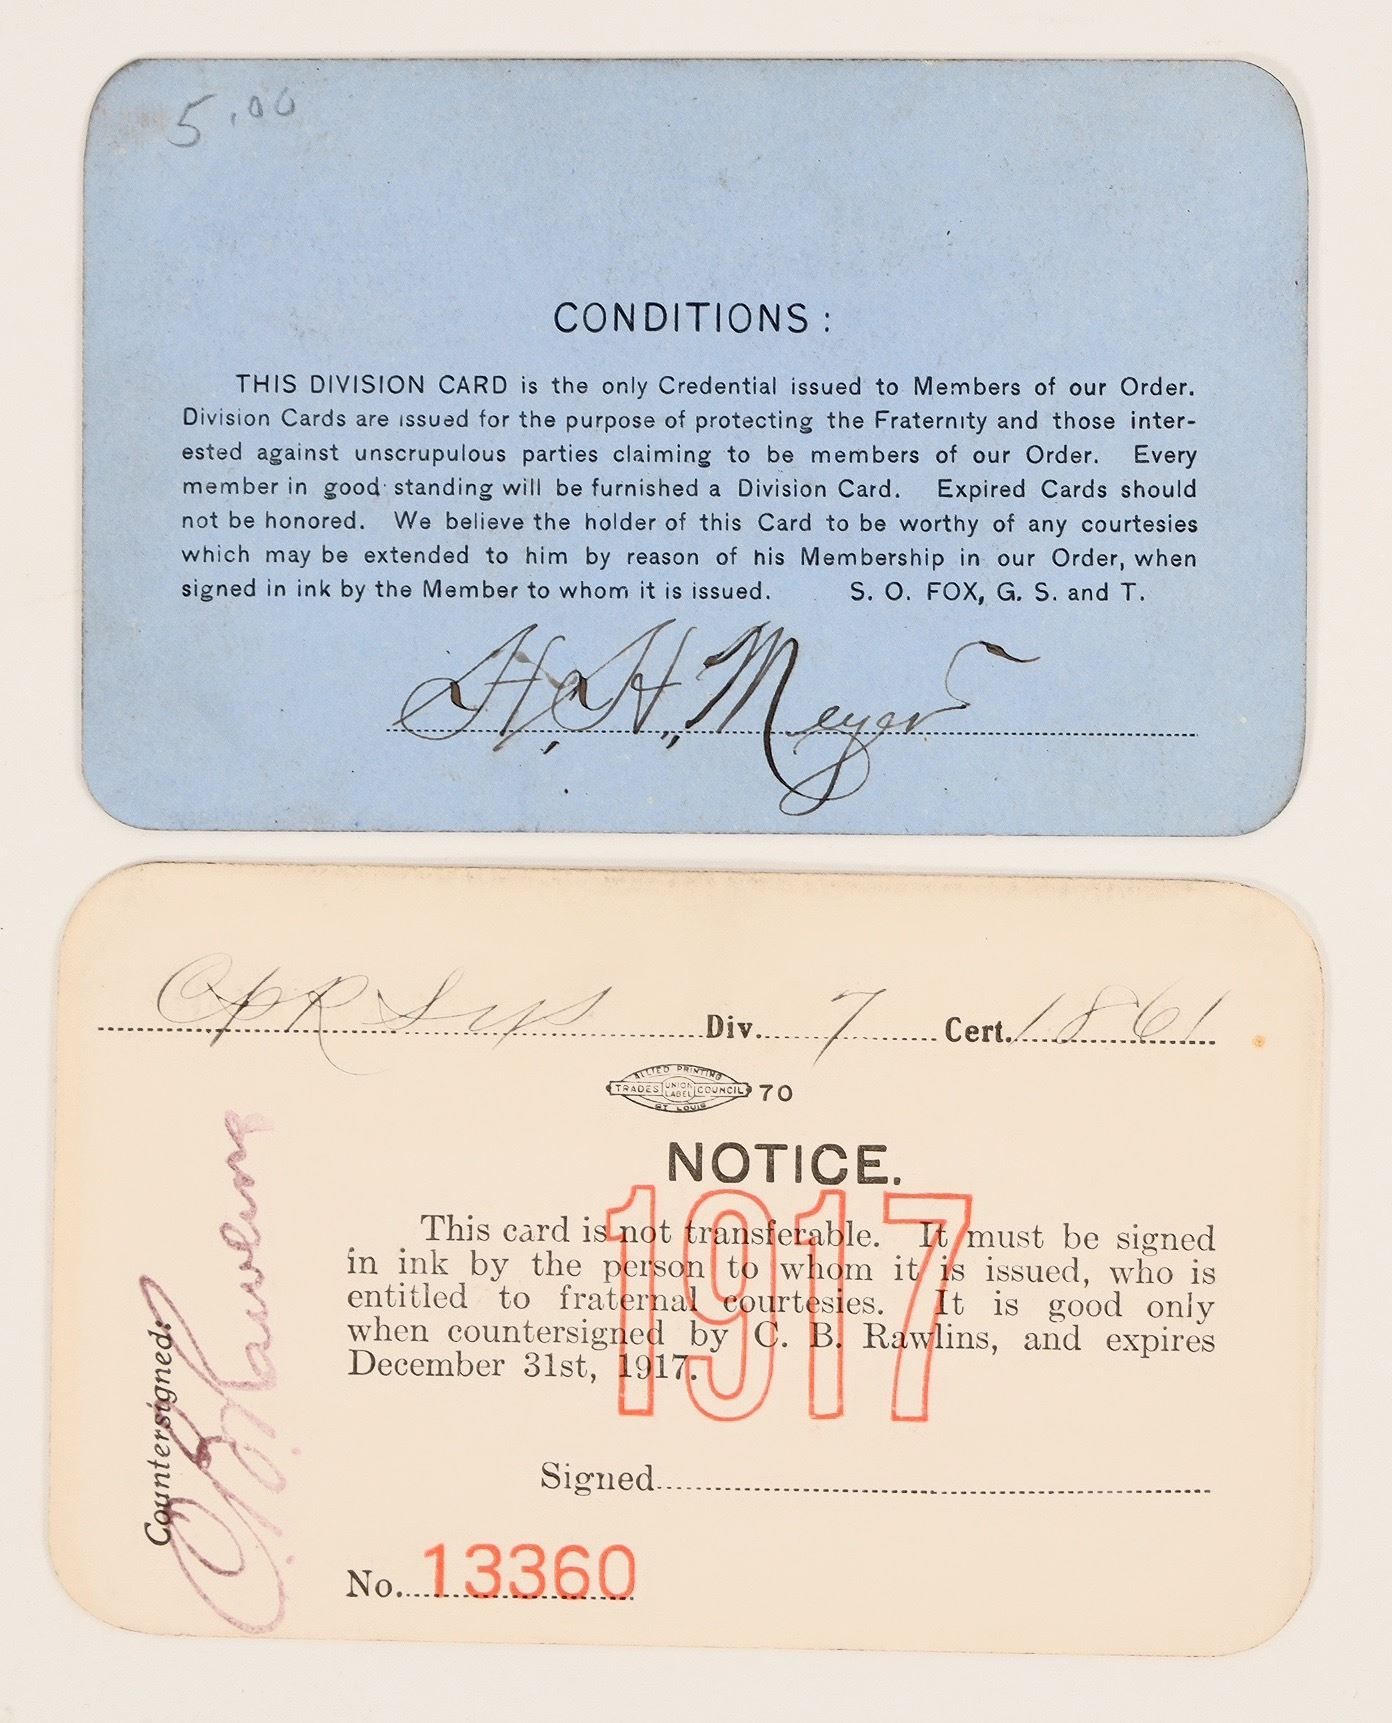 5.00
CONDITIONS:
THIS DIVISION CARD is the only Credential issued to Members of our Order.
Division Cards are issued for the purpose of protecting the Fraternity and those inter-
ested against unscrupulous parties claiming to be members of our Order. Every
member in good standing will be furnished a Division Card. Expired Cards should
not be honored. We believe the holder of this Card to be worthy of any courtesies
which may be extended to him by reason of his Membership in our Order, when
signed in ink by the Member to whom it is issued. S. O. FOX, G. S. and T.
H. H. Meyer
CPR Sys Div. 7 Cert. 1861
ALLIED PRINTING
TRADES UNION LABEL COUNCIL 70
ST LOUIS
NOTICE.
1917
This card is not transferable. It must be signed
in ink by the person to whom it is issued, who is
entitled to fraternal courtesies. It is good only
when countersigned by C. B. Rawlins, and expires
December 31st, 1917.
Signed
Countersigned:
C. B. Rawlins
No. 13360